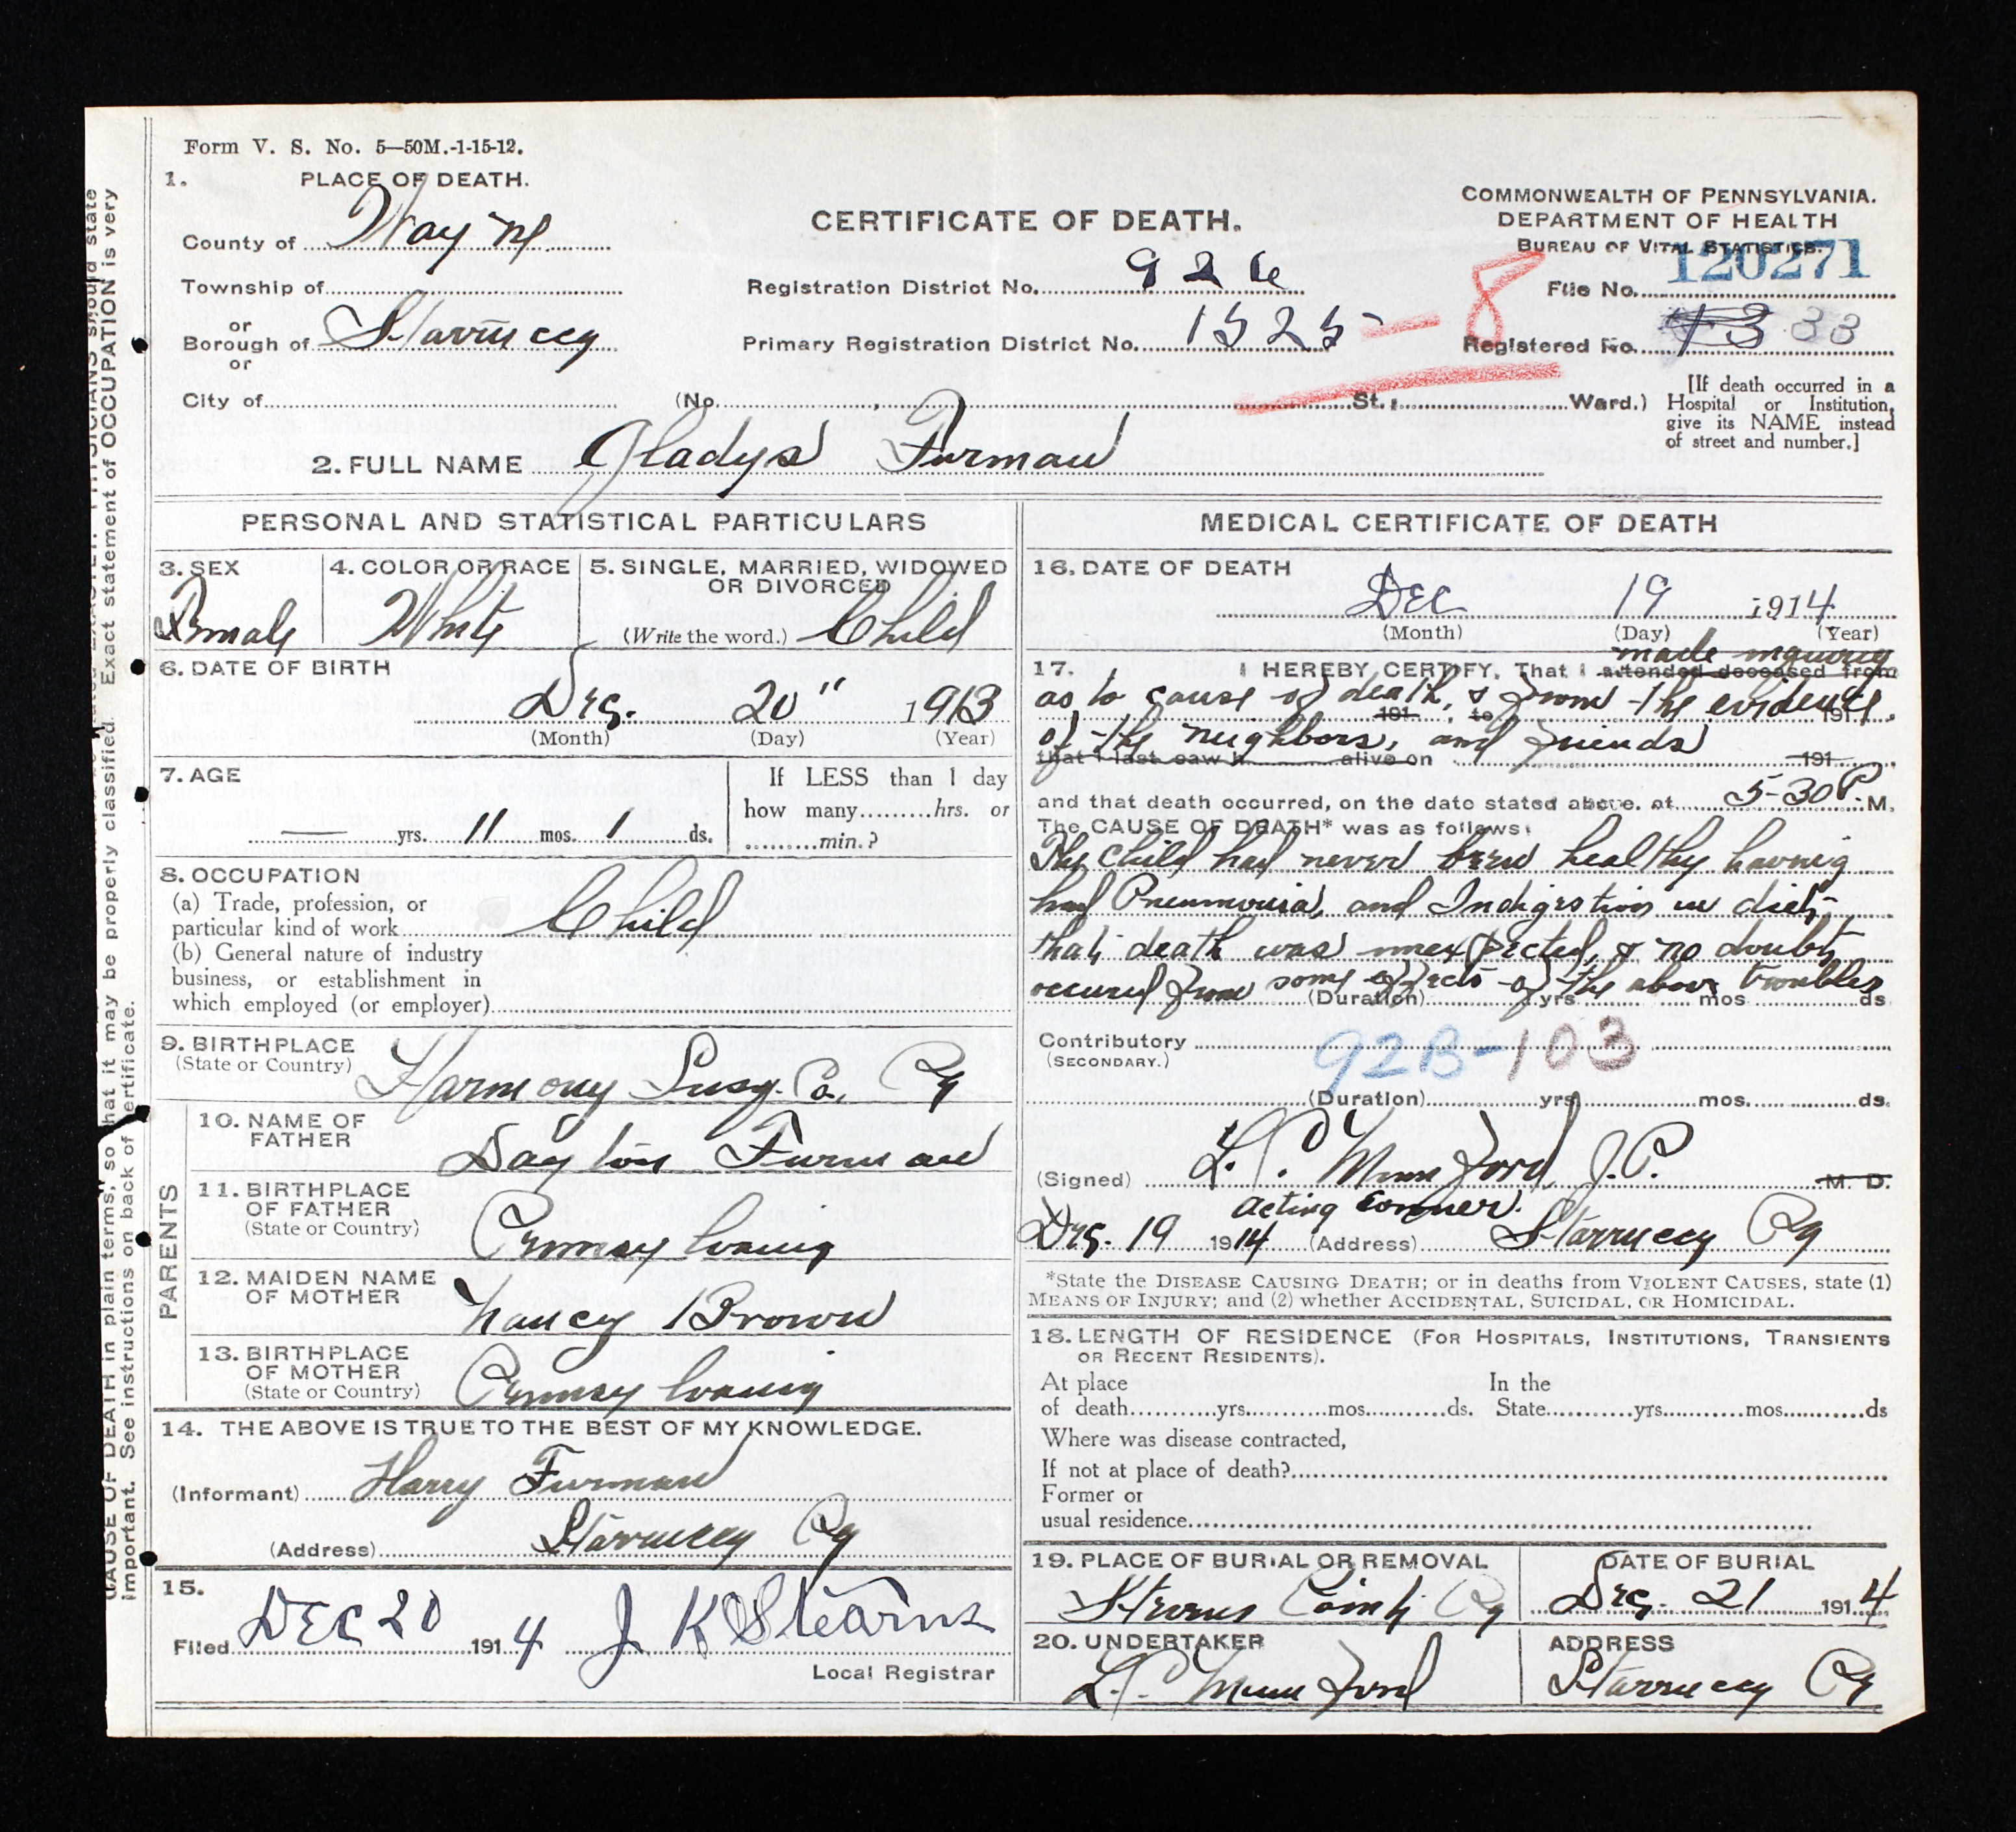 Form V. S. No. 5—50M.-1-15-12.
1. PLACE OF DEATH.
County of Wayne
Township of
or
Borough of Starrucca
or
City of
CERTIFICATE OF DEATH.
Registration District No. 926
Primary Registration District No. 1525 - 8
(No. , St.; Ward.)
COMMONWEALTH OF PENNSYLVANIA.
DEPARTMENT OF HEALTH
BUREAU OF VITAL STATISTICS.
File No. 120271
Registered No. 33
[If death occurred in a
Hospital or Institution,
give its NAME instead
of street and number.]
2. FULL NAME Gladys Furman
PERSONAL AND STATISTICAL PARTICULARS
3. SEX
Female
4. COLOR OR RACE
White
5. SINGLE, MARRIED, WIDOWED
OR DIVORCED
(Write the word.) Child
6. DATE OF BIRTH
Dec. 20" 1913
(Month) (Day) (Year)
7. AGE
— yrs. 11 mos. 1 ds.
If LESS than 1 day
how many hrs. or
min.?
8. OCCUPATION
(a) Trade, profession, or
particular kind of work Child
(b) General nature of industry
business, or establishment in
which employed (or employer)
9. BIRTHPLACE
(State or Country) Harmony Susq. Co., Pa
PARENTS
10. NAME OF
FATHER Dayton Furman
11. BIRTHPLACE
OF FATHER
(State or Country) Pennsylvania
12. MAIDEN NAME
OF MOTHER Nancy Brown
13. BIRTHPLACE
OF MOTHER
(State or Country) Pennsylvania
14. THE ABOVE IS TRUE TO THE BEST OF MY KNOWLEDGE.
(Informant) Harry Furman
(Address) Starrucca Pa
15.
Filed DEC 20 1914 J K Stearns
Local Registrar
MEDICAL CERTIFICATE OF DEATH
16. DATE OF DEATH
Dec 19 1914
(Month) (Day) (Year)
made inquiry
17. I HEREBY CERTIFY, That I attended deceased from
as to cause of death, & from the evidence
191 , to 191 ,
of the neighbors, and friends
that I last saw h alive on 191
and that death occurred, on the date stated above, at 5-30 P. M.
The CAUSE OF DEATH* was as follows:
The child had never been healthy having
had Pneumonia, and Indigestion in diet,
that death was unexpected, & no doubt
occured from some effects of the above troubles
(Duration) yrs mos ds
Contributory 92B-103
(SECONDARY.)
(Duration) yrs. mos. ds.
(Signed) L. P. Mumford, J. P. M. D.
acting Coroner.
Dec. 19 1914 (Address) Starrucca Pa
*State the DISEASE CAUSING DEATH; or in deaths from VIOLENT CAUSES, state (1)
MEANS OF INJURY; and (2) whether ACCIDENTAL, SUICIDAL, OR HOMICIDAL.
18. LENGTH OF RESIDENCE (FOR HOSPITALS, INSTITUTIONS, TRANSIENTS
OR RECENT RESIDENTS).
At place In the
of death yrs. mos. ds. State yrs. mos. ds
Where was disease contracted,
If not at place of death?
Former or
usual residence
19. PLACE OF BURIAL OR REMOVAL
Stevens Point Pa
DATE OF BURIAL
Dec. 21 1914
20. UNDERTAKER
L. P. Mumford
ADDRESS
Starrucca Pa
PHYSICIANS should state
CAUSE OF DEATH in plain terms, so that it may be properly classified. Exact statement of OCCUPATION is very
important. See instructions on back of certificate.